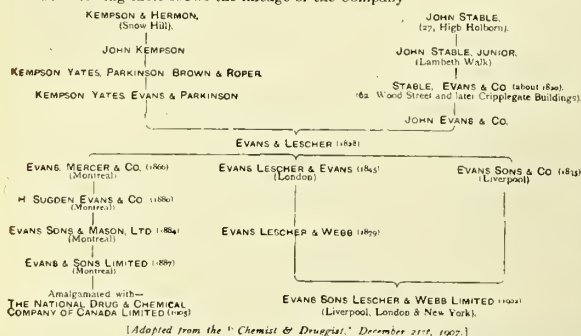 KEMPSON & HERMON,
(Snow Hill).
JOHN KEMPSON
KEMPSON YATES, PARKINSON BROWN & ROPER
KEMPSON YATES EVANS & PARKINSON
JOHN STABLE,
(27, High Holborn).
JOHN STABLE, JUNIOR,
(Lambeth Walk)
STABLE, EVANS & CO (about 1820).
(62 Wood Street and later Cripplegate Buildings).
JOHN EVANS & CO.
EVANS & LESCHER (1828)
EVANS, MERCER & CO, (1866)
(Montreal)
H SUGDEN EVANS & CO (1880)
(Montreal)
EVANS SONS & MASON, LTD (1884)
(Montreal)
EVANS & SONS LIMITED (1887)
(Montreal)
Amalgamated with—
THE NATIONAL DRUG & CHEMICAL
COMPANY OF CANADA LIMITED (1905)
EVANS LESCHER & EVANS (1845)
(London)
EVANS LESCHER & WEBB (1879)
EVANS SONS & CO (1835)
(Liverpool)
EVANS SONS LESCHER & WEBB LIMITED (1902)
(Liverpool, London & New York).
[Adapted from the "Chemist & Druggist," December 21st, 1907.]